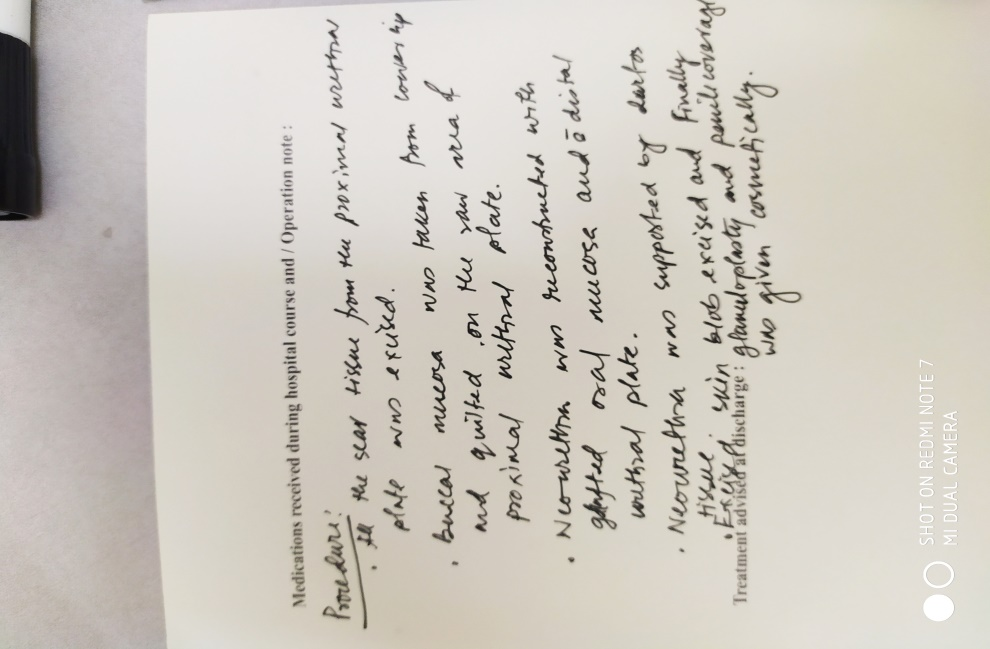 Medications received during hospital course and / Operation note :
Procedure:
• All the scar tissue from the proximal urethral
plate was excised.
• Buccal mucosa was taken from lip
and quilted on the raw area of
proximal urethral plate.
• Neourethra was reconstructed with
grafted oral mucosa and c̄ distal
urethral plate.
• Neourethra was supported by dartos
tissue.
• Excised skin blob excised and Finally
glanuloplasty and penile coverage
was given cosmetically.
Treatment advised at discharge :
SHOT ON REDMI NOTE 7
MI DUAL CAMERA